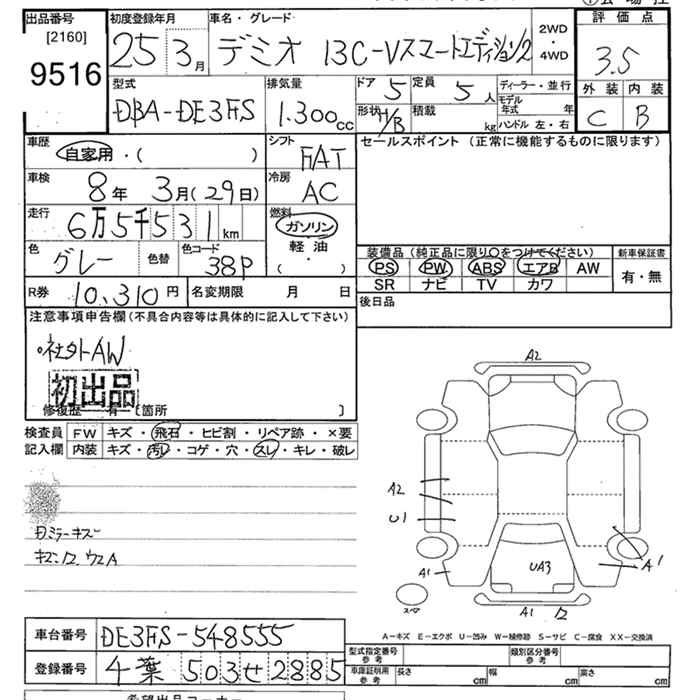 出品番号 初度登録年月 車名・グレード 2WD ・ 4WD 評価点
[2160]
9516 25 3月 デミオ 13C-Vスマートエディション2 3.5
外装 内装
C B
型式 排気量 ドア 定員 ディーラー・並行
DBA-DE3FS 1.300cc 5 5人 モデル年式 年
形状 H/B 積載 kg ハンドル 左・右
車歴 シフト セールスポイント (正常に機能するものに限ります)
自家用・( ) FAT
車検 冷房
8年 3月(29日) AC
走行 燃料
6万5千531km ガソリン
軽油
( ・ )
色 グレー 色替 色コード 38P
装備品(純正品に限り○をつけてください) 新車保証書
PS PW ABS エアB AW 有・無
SR ナビ TV カワ
R券 10,310円 名変期限 月 日 後日品
注意事項申告欄(不具合内容等は具体的に記入して下さい)
・社外AW
初出品
修復歴 有 [箇所 ]
検査員 FW キズ・飛石・ヒビ割・リペア跡・×要
記入欄 内装 キズ・汚レ・コゲ・穴・スレ・キレ・破レ
A2
A2
U1
A1
A1
UA3
A1
スペア
A-キズ E-エクボ U-凹み W-補修跡 S-サビ C-腐食 XX-交換済
車台番号 DE3FS-548555
登録番号 千葉 503せ2885
型式指定番号 参考 類別区分番号 参考
車庫証明用 参考 長さ cm 幅 cm 高さ cm
希望出品コーナー